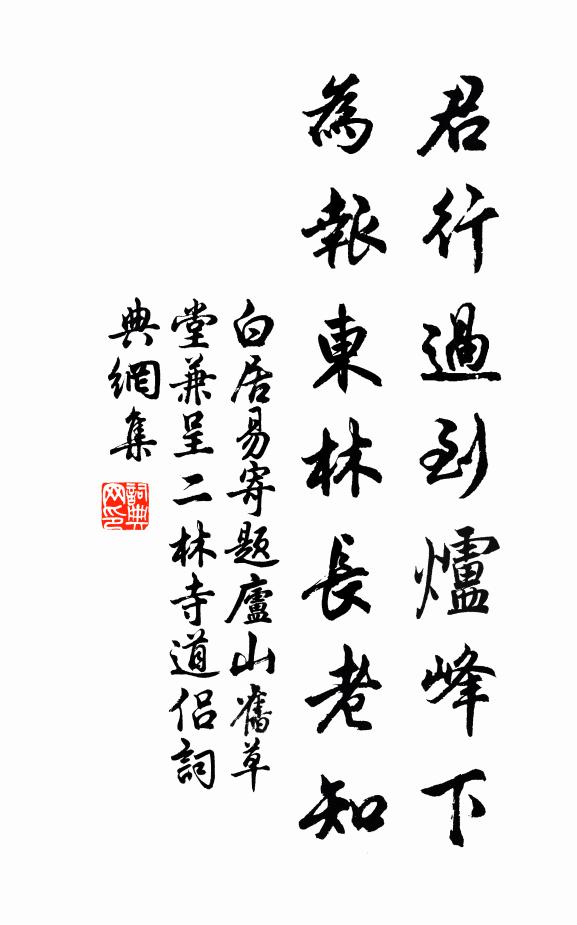 君行過到爐峰下
為報東林長老知
白居易寄題廬山舊草
堂兼呈二林寺道侣詞
典網集
詞典
网印